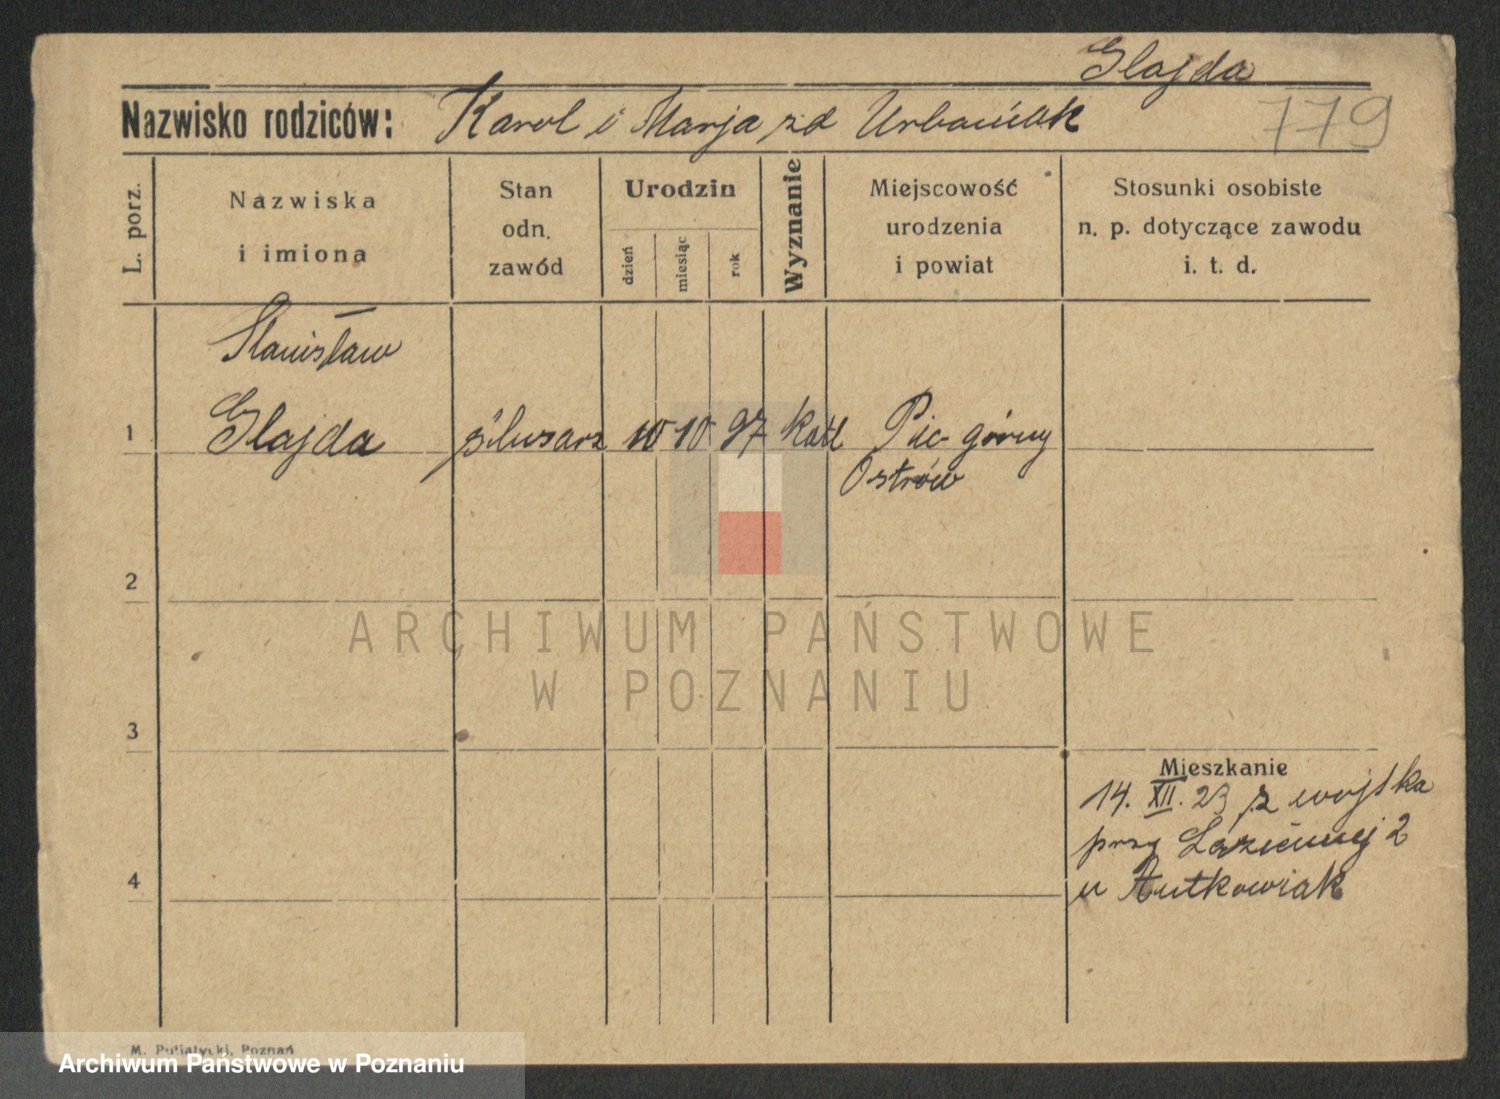 Glajda
Nazwisko rodziców: Karol i Marja zd Urbaniak
779
L. porz.
Nazwiska
i imiona
Stan
odn.
zawód
Urodzin
dzień
miesiąc
rok
Wyznanie
Miejscowość
urodzenia
i powiat
Stosunki osobiste
n. p. dotyczące zawodu
i. t. d.
Stanisław
1 Glajda ślusarz 10 10 97 katl górny
Ostrów
2
ARCHIWUM PAŃSTWOWE
W POZNANIU
3
Mieszkanie
14. XII. 23 z wojska
przy Łaziennej 2
u Antkowiak
4
M. Poznań
Archiwum Państwowe w Poznaniu